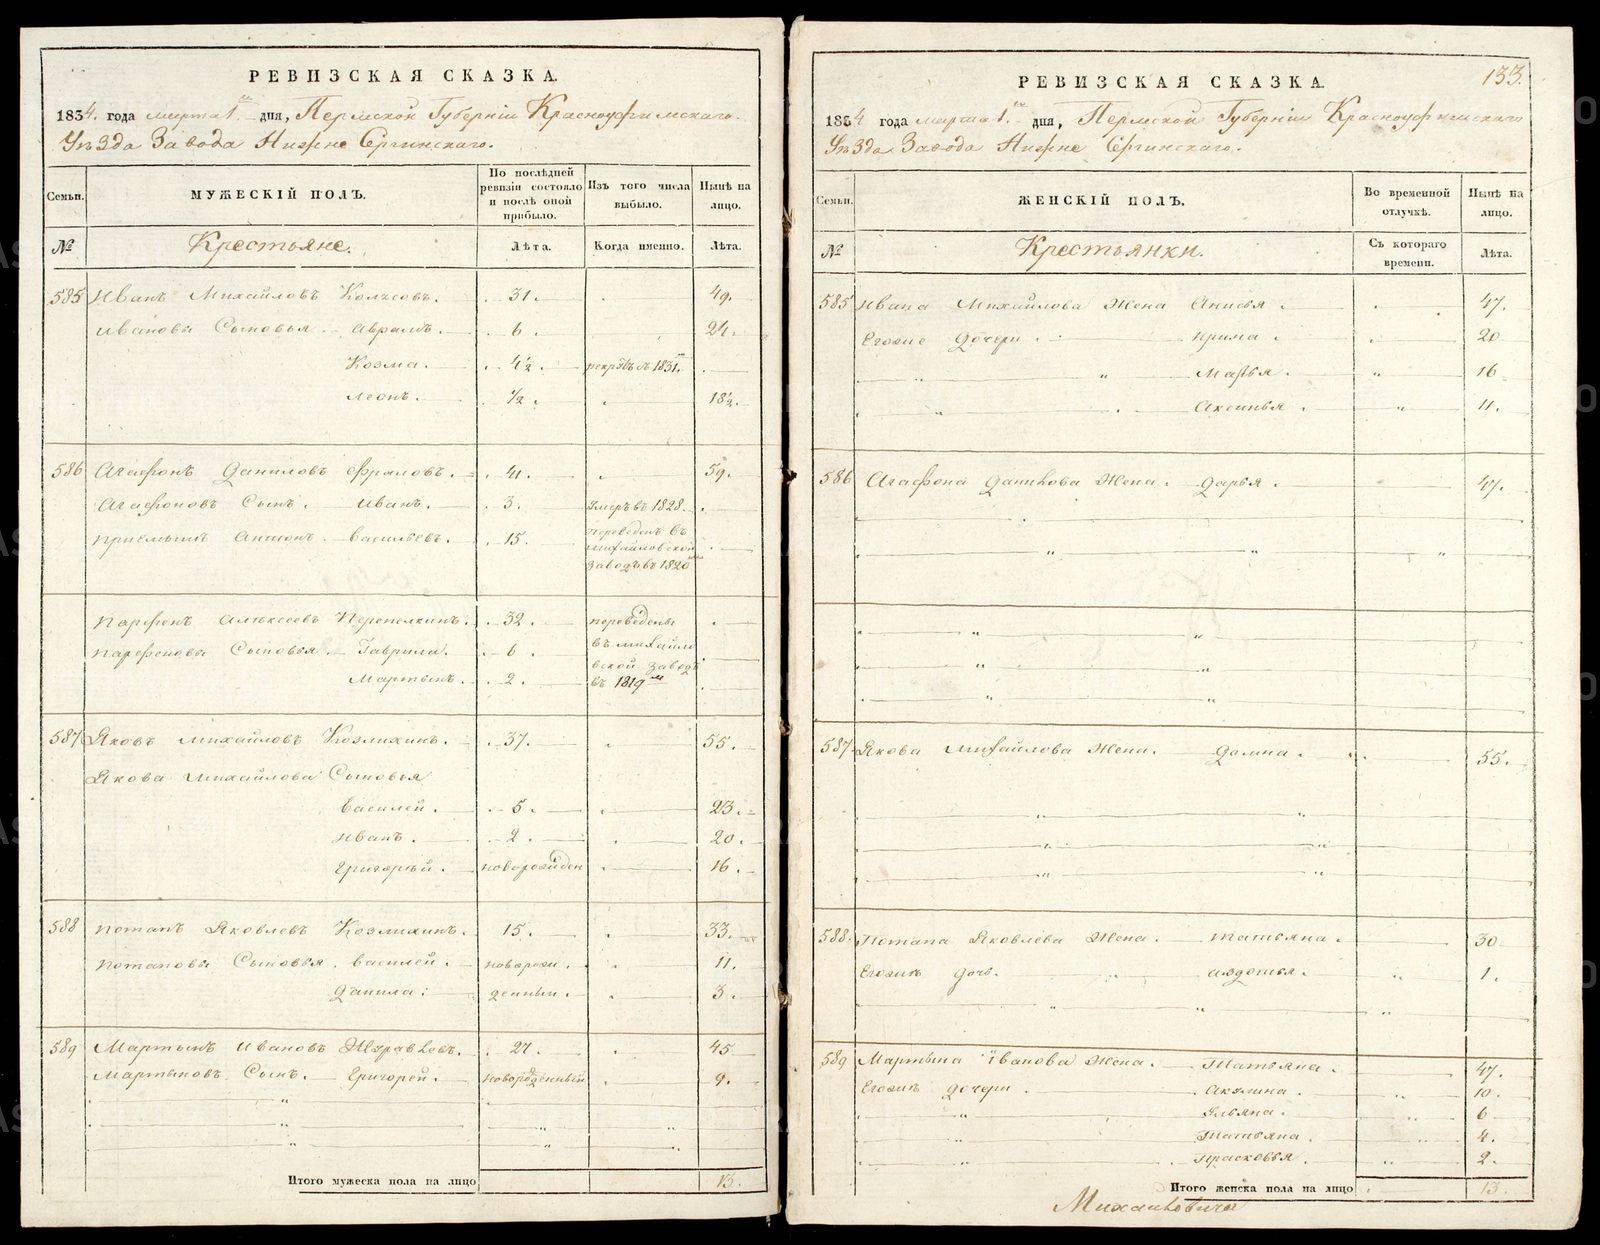 РЕВИЗСКАЯ СКАЗКА.
1834. года марта 1го дня, Пермской Губерніи Красноуфимскаго.
Уѣзда Завода Нижне Сергинскаго.
Семьи.
МУЖЕСКІЙ ПОЛЪ.
По послѣдней ревизіи состояло и послѣ оной прибыло.
Изъ того числа выбыло.
Нынѣ на лицо.
№
Крестьяне.
Лѣта.
Когда именно.
Лѣта.
585 Иванъ Михайловъ . 31. 49.
Ивановы Сыновья Авраамъ. 6. 24.
Козма. 4½ 1831.
Леонъ. ½. 18½.
586 Агафонъ Даниловъ Фряловъ. 41. 59.
Агафоновъ Сынъ. Иванъ. 3. умеръ въ 1828.
Приемышъ Антонъ Васильевъ. 15. переведенъ въ
Михайловской
заводъ въ 1820
Парфенъ Алексеевъ Перепелкинъ. 32. переведены
Парфеновы Сыновья Гаврила. 6. въ Михайло
вской завод
Мартынъ. 2. въ 1819м
587 Яковъ Михайловъ Козлихинъ. 37. 55.
Якова Михайлова Сыновья
Василей. 5. 23.
Иванъ. 2. 20.
Григорьй. новорожден 16.
588 Потапъ Яковлевъ Козлихинъ. 15. 33.
Потаповы Сыновья. Василей. новорож. 11.
Данила: денныи. 3.
589 Мартынъ Ивановъ Журавлевъ. 27. 45
Мартыновъ Сынъ. Григорей. новорожденный 9.
Итого мужеска пола на лицо 13.
РЕВИЗСКАЯ СКАЗКА. 133.
1834 года марта 1го дня, Пермской Губерніи Красноуфимскаго
Уѣзда Завода Нижне Сергинскаго.
Семьи.
ЖЕНСКІЙ ПОЛЪ.
Во временной отлучкѣ.
Нынѣ на лицо.
№
Крестьянки.
Съ котораго времени.
Лѣта.
585 Ивана Михайлова Жена Анисья. 47.
Егоже Дочери. Ирина. 20
Марья. 16
Аксинья. 11.
586 Агафона Данилова Жена. Дарья. 47.
587. Якова Михайлова Жена. Домна. 55.
588. Потапа Яковлева Жена. Татьяна. 30
Егожъ Дочь. Авдотья. 1.
589 Мартына Иванова Жена. Татьяна. 47.
Егожъ Дочери. Акулина. 10.
Ульяна. 6
Татьяна. 4.
Прасковья. 2.
Итого женска пола на лицо 13.